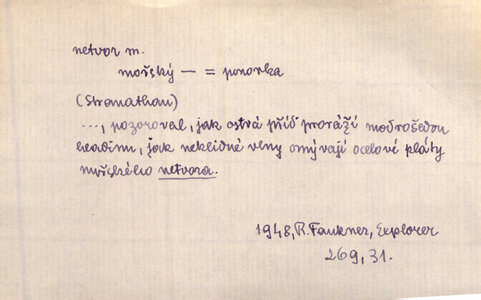 netvor m.
mořský — = ponorka
(Stranathan)
..., pozoroval, jak ostrá příď proráží modrošedou
hladinu, jak neklidné vlny omývají ocelové pláty
mořského netvora.
1948, R. Faukner, Explorer
269, 31.